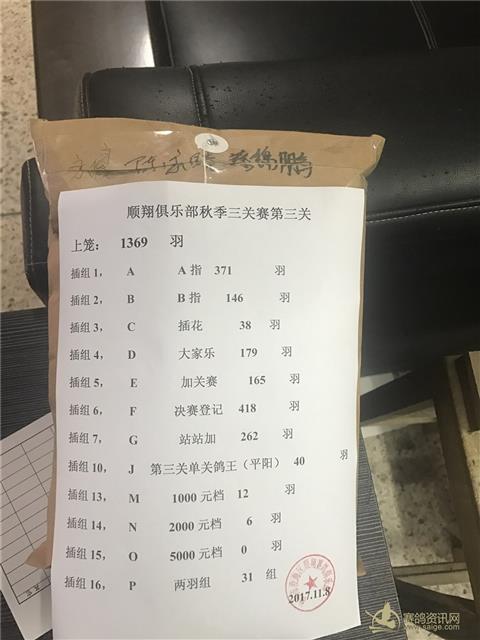 蔡锦鹏
顺翔俱乐部秋季三关赛第三关
上笼: 1369 羽
插组 1, A A 指 371 羽
插组 2, B B 指 146 羽
插组 3, C 插花 38 羽
插组 4, D 大家乐 179 羽
插组 5, E 加关赛 165 羽
插组 6, F 决赛登记 418 羽
插组 7, G 站站加 262 羽
插组 10, J 第三关单关鸽王（平阳） 40 羽
插组 13, M 1000 元档 12 羽
插组 14, N 2000 元档 6 羽
插组 15, O 5000 元档 0 羽
插组 16, P 两羽组 31 组
2017.11.8
赛鸽资讯网
www.saige.com